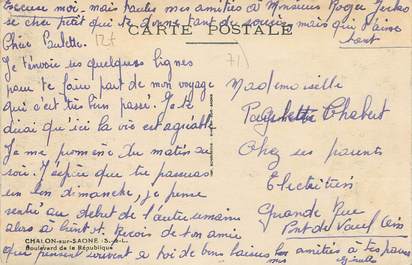 Excuse moi. mais toutes mes amitiés à Monsieur Roger
ce cher petit qui te donne tant de soucis mais qui t'aime
tant
CARTE POSTALE
Chère Paulette.
Je t'envoie ces quelques lignes
pour te faire part de mon voyage
qui s'est très bien passé. Je te
dirai qu'ici la vie est agréable
Je me promène du matin au
soir. J'espère que tu passeras
un bon dimanche, je pense
rentré au début de l'autre semaine
alors à bientôt. Reçois de ton amie
qui pensent souvent à toi de bons baisers
mes amitiés à tes parents
CHALON-sur-SAONE (S.-et-L.)
Boulevard de la République
71
Mademoiselle
Paulette Chabert
Chez ses parents
Electricien
Grande Rue
Pont de Vaux Ain